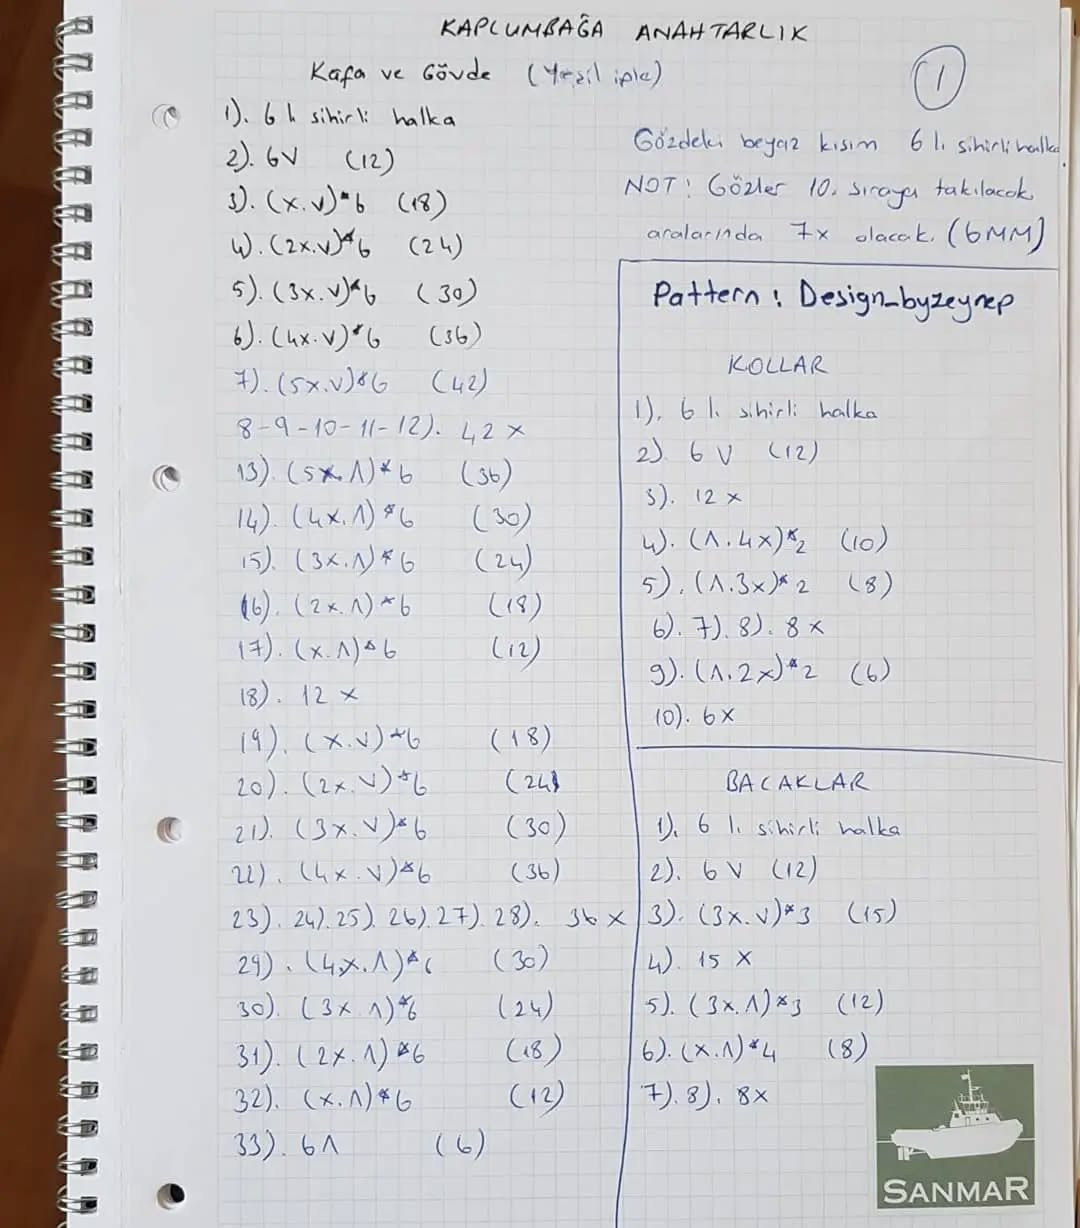 KAPLUMBAĞA ANAHTARLIK
Kafa ve Gövde (Yeşil iple)
1
1). 6 lı sihirli halka
2). 6V (12)
3). (x.v)*6 (18)
4). (2x.v)*6 (24)
5). (3x.v)*6 (30)
6). (4x.v)*6 (36)
7). (5x.v)*6 (42)
8-9-10-11-12). 42 x
13). (5x.Λ)*6 (36)
14). (4x.Λ)*6 (30)
15). (3x.Λ)*6 (24)
16). (2x.Λ)*6 (18)
17). (x.Λ)*6 (12)
18). 12 x
19). (x.v)*6 (18)
20). (2x.v)*6 (24)
21). (3x.v)*6 (30)
22). (4x.v)*6 (36)
23). 24). 25). 26). 27). 28). 36 x
29). (4x.Λ)*6 (30)
30). (3x.Λ)*6 (24)
31). (2x.Λ)*6 (18)
32). (x.Λ)*6 (12)
33). 6Λ (6)
Gözdeki beyaz kısım 6 lı sihirli halka.
NOT: Gözler 10. sıraya takılacak
aralarında 7x olacak. (6MM)
Pattern : Design_byzeynep
KOLLAR
1). 6 lı sihirli halka
2). 6 V (12)
3). 12 x
4). (Λ.4x)*2 (10)
5). (Λ.3x)*2 (8)
6). 7). 8). 8 x
9). (Λ.2x)*2 (6)
10). 6x
BACAKLAR
1). 6 lı sihirli halka
2). 6 V (12)
3). (3x.v)*3 (15)
4). 15 x
5). (3x.Λ)*3 (12)
6). (x.Λ)*4 (8)
7). 8). 8x
SANMAR